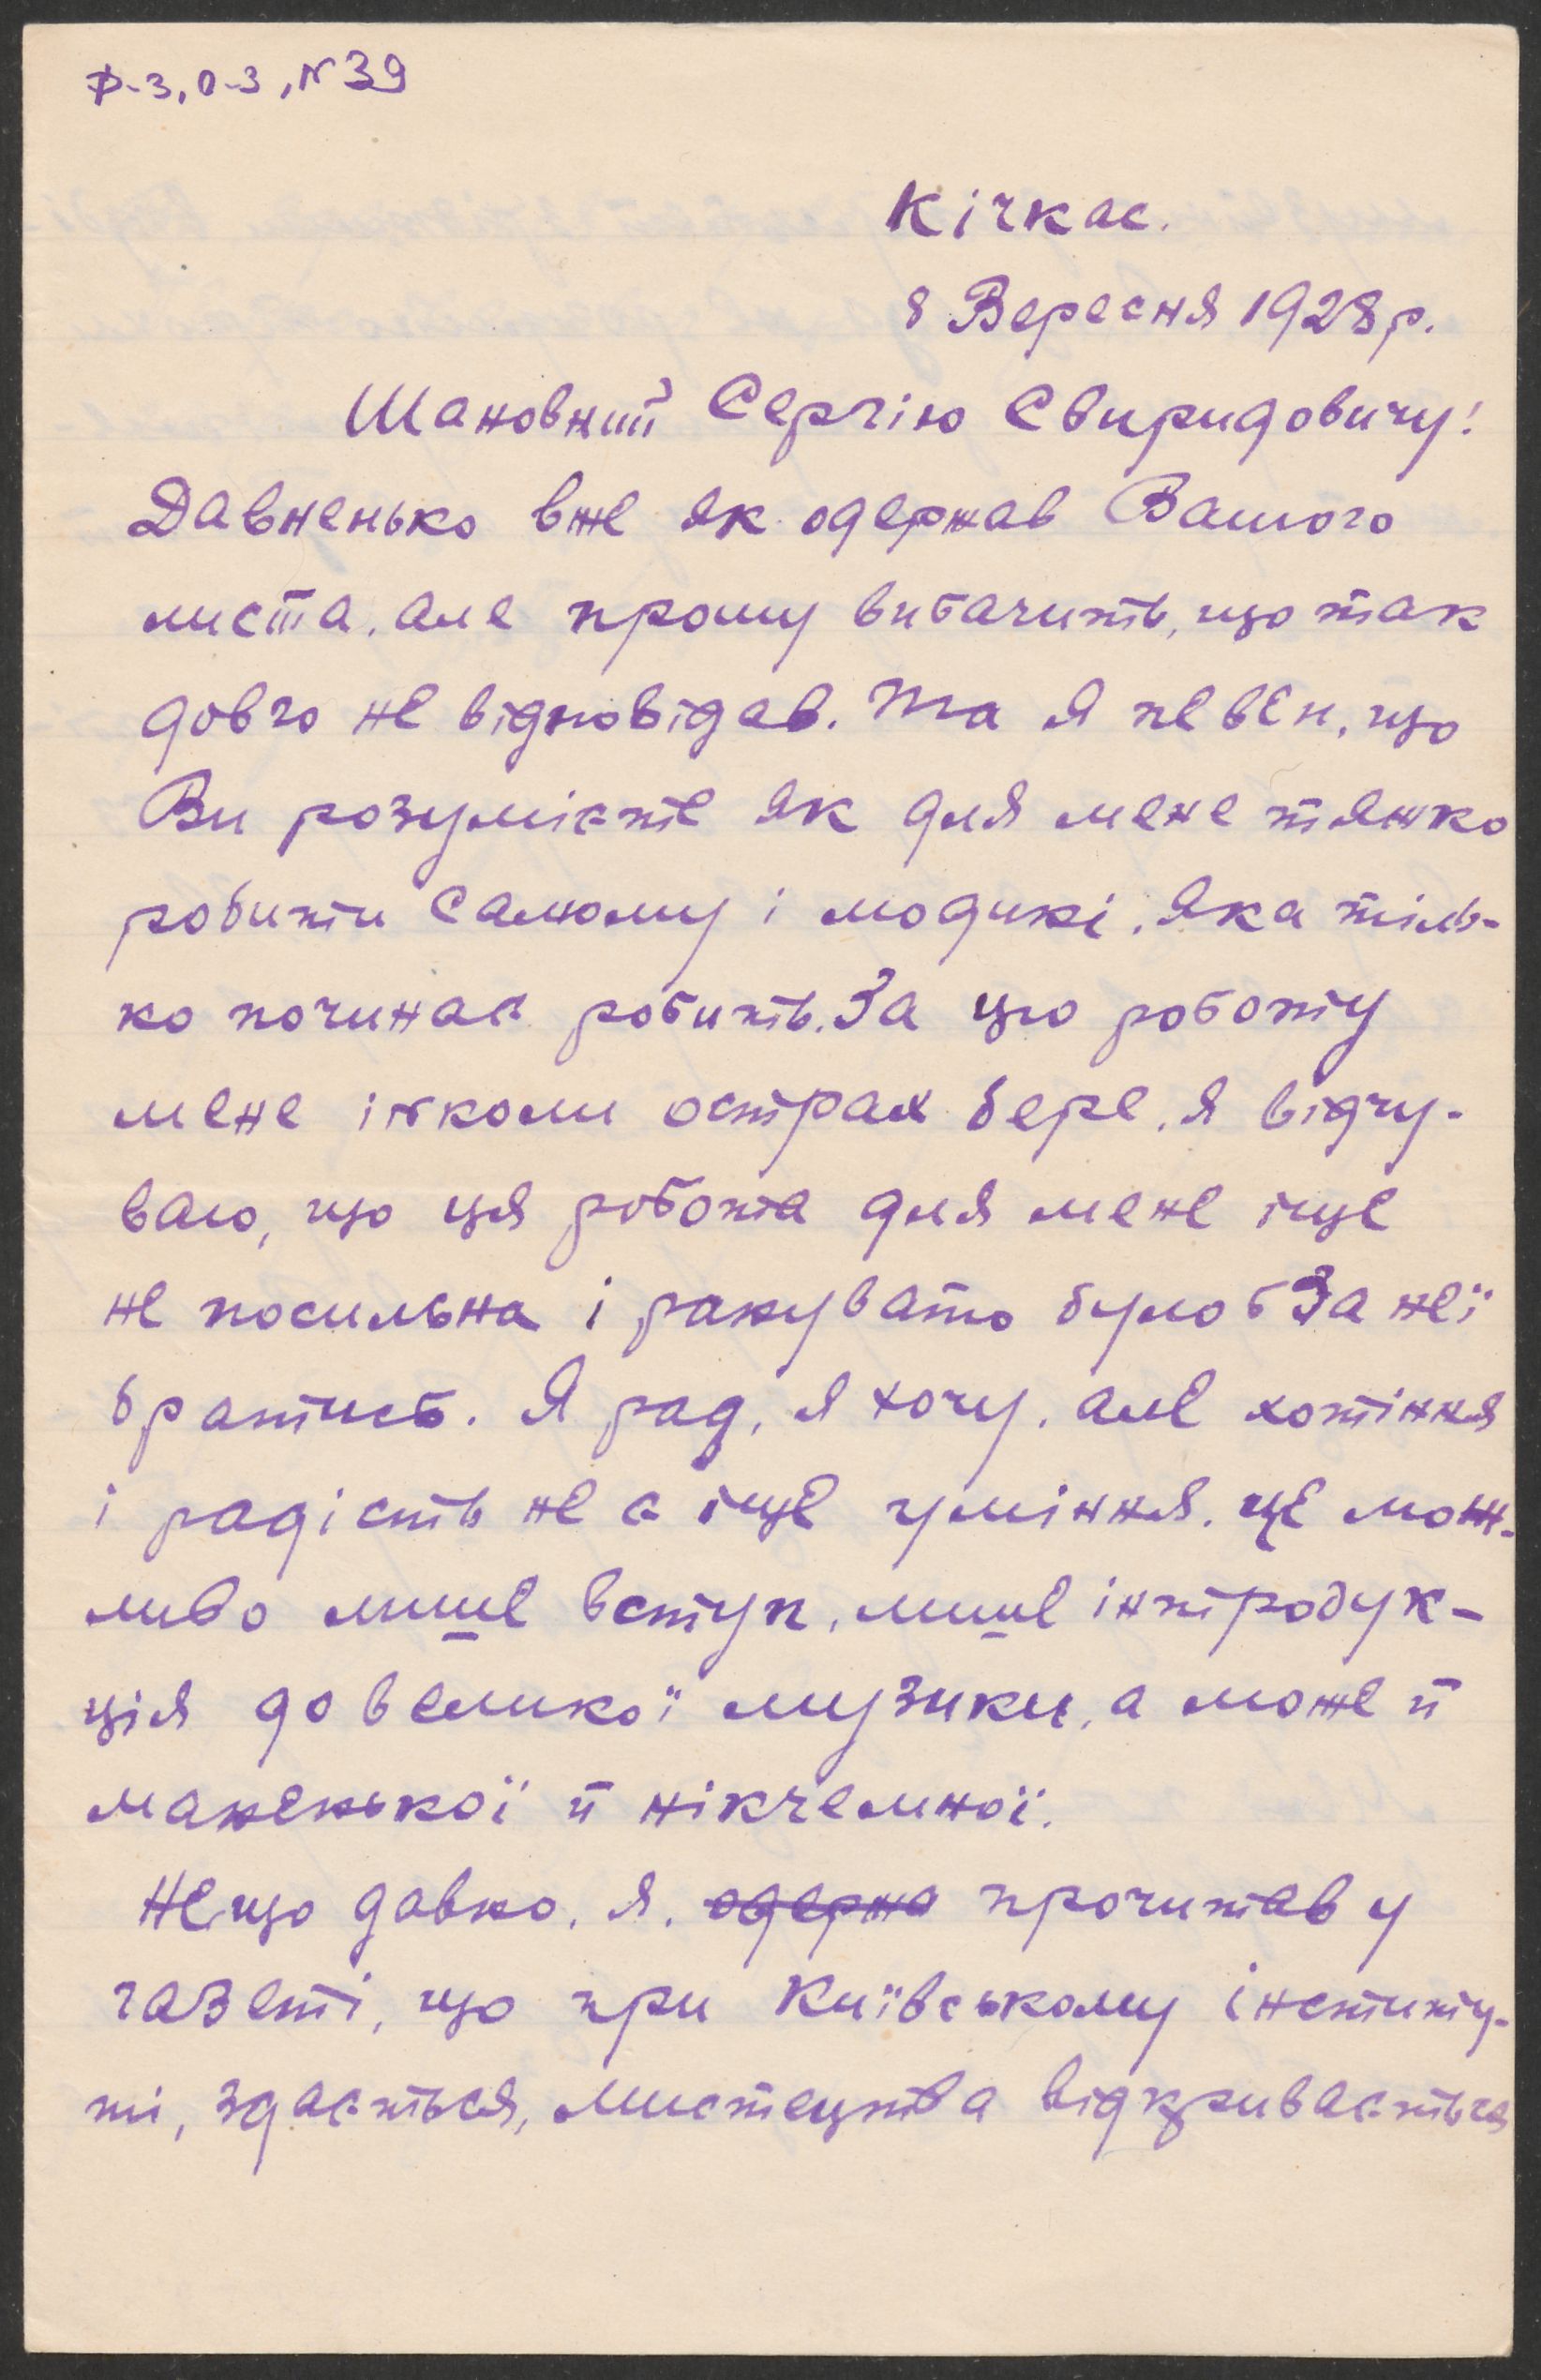 Ф-3, О-3, N 39
Кічкас.
8 Вересня 1928 р.
Шановний Сергію Свиридовичу!
Давненько вже як одержав Вашого
листа, але прошу вибачить, що так
довго не відповідав. Та я певен, що
Ви розумієте як для мене тяжко
робити самому і людині, яка тіль-
ко починає робить. За цю роботу
мене інколи острах бере, я відчу-
ваю, що ця робота для мене іще
не посильна і ранувато було б за неї
братись. Я рад, я хочу, але хотіння
і радість не є іще уміння. Це мож-
ливо лише вступ, лише інтродук-
ція до великої музики, а може й
маненької й нікчемної.
Не що давно, я, одержа прочитав у
газеті, що при Київському інститу-
ті, здається, мистецтва відкривається